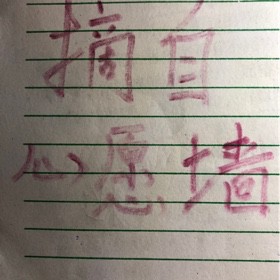 摘自
心愿墙